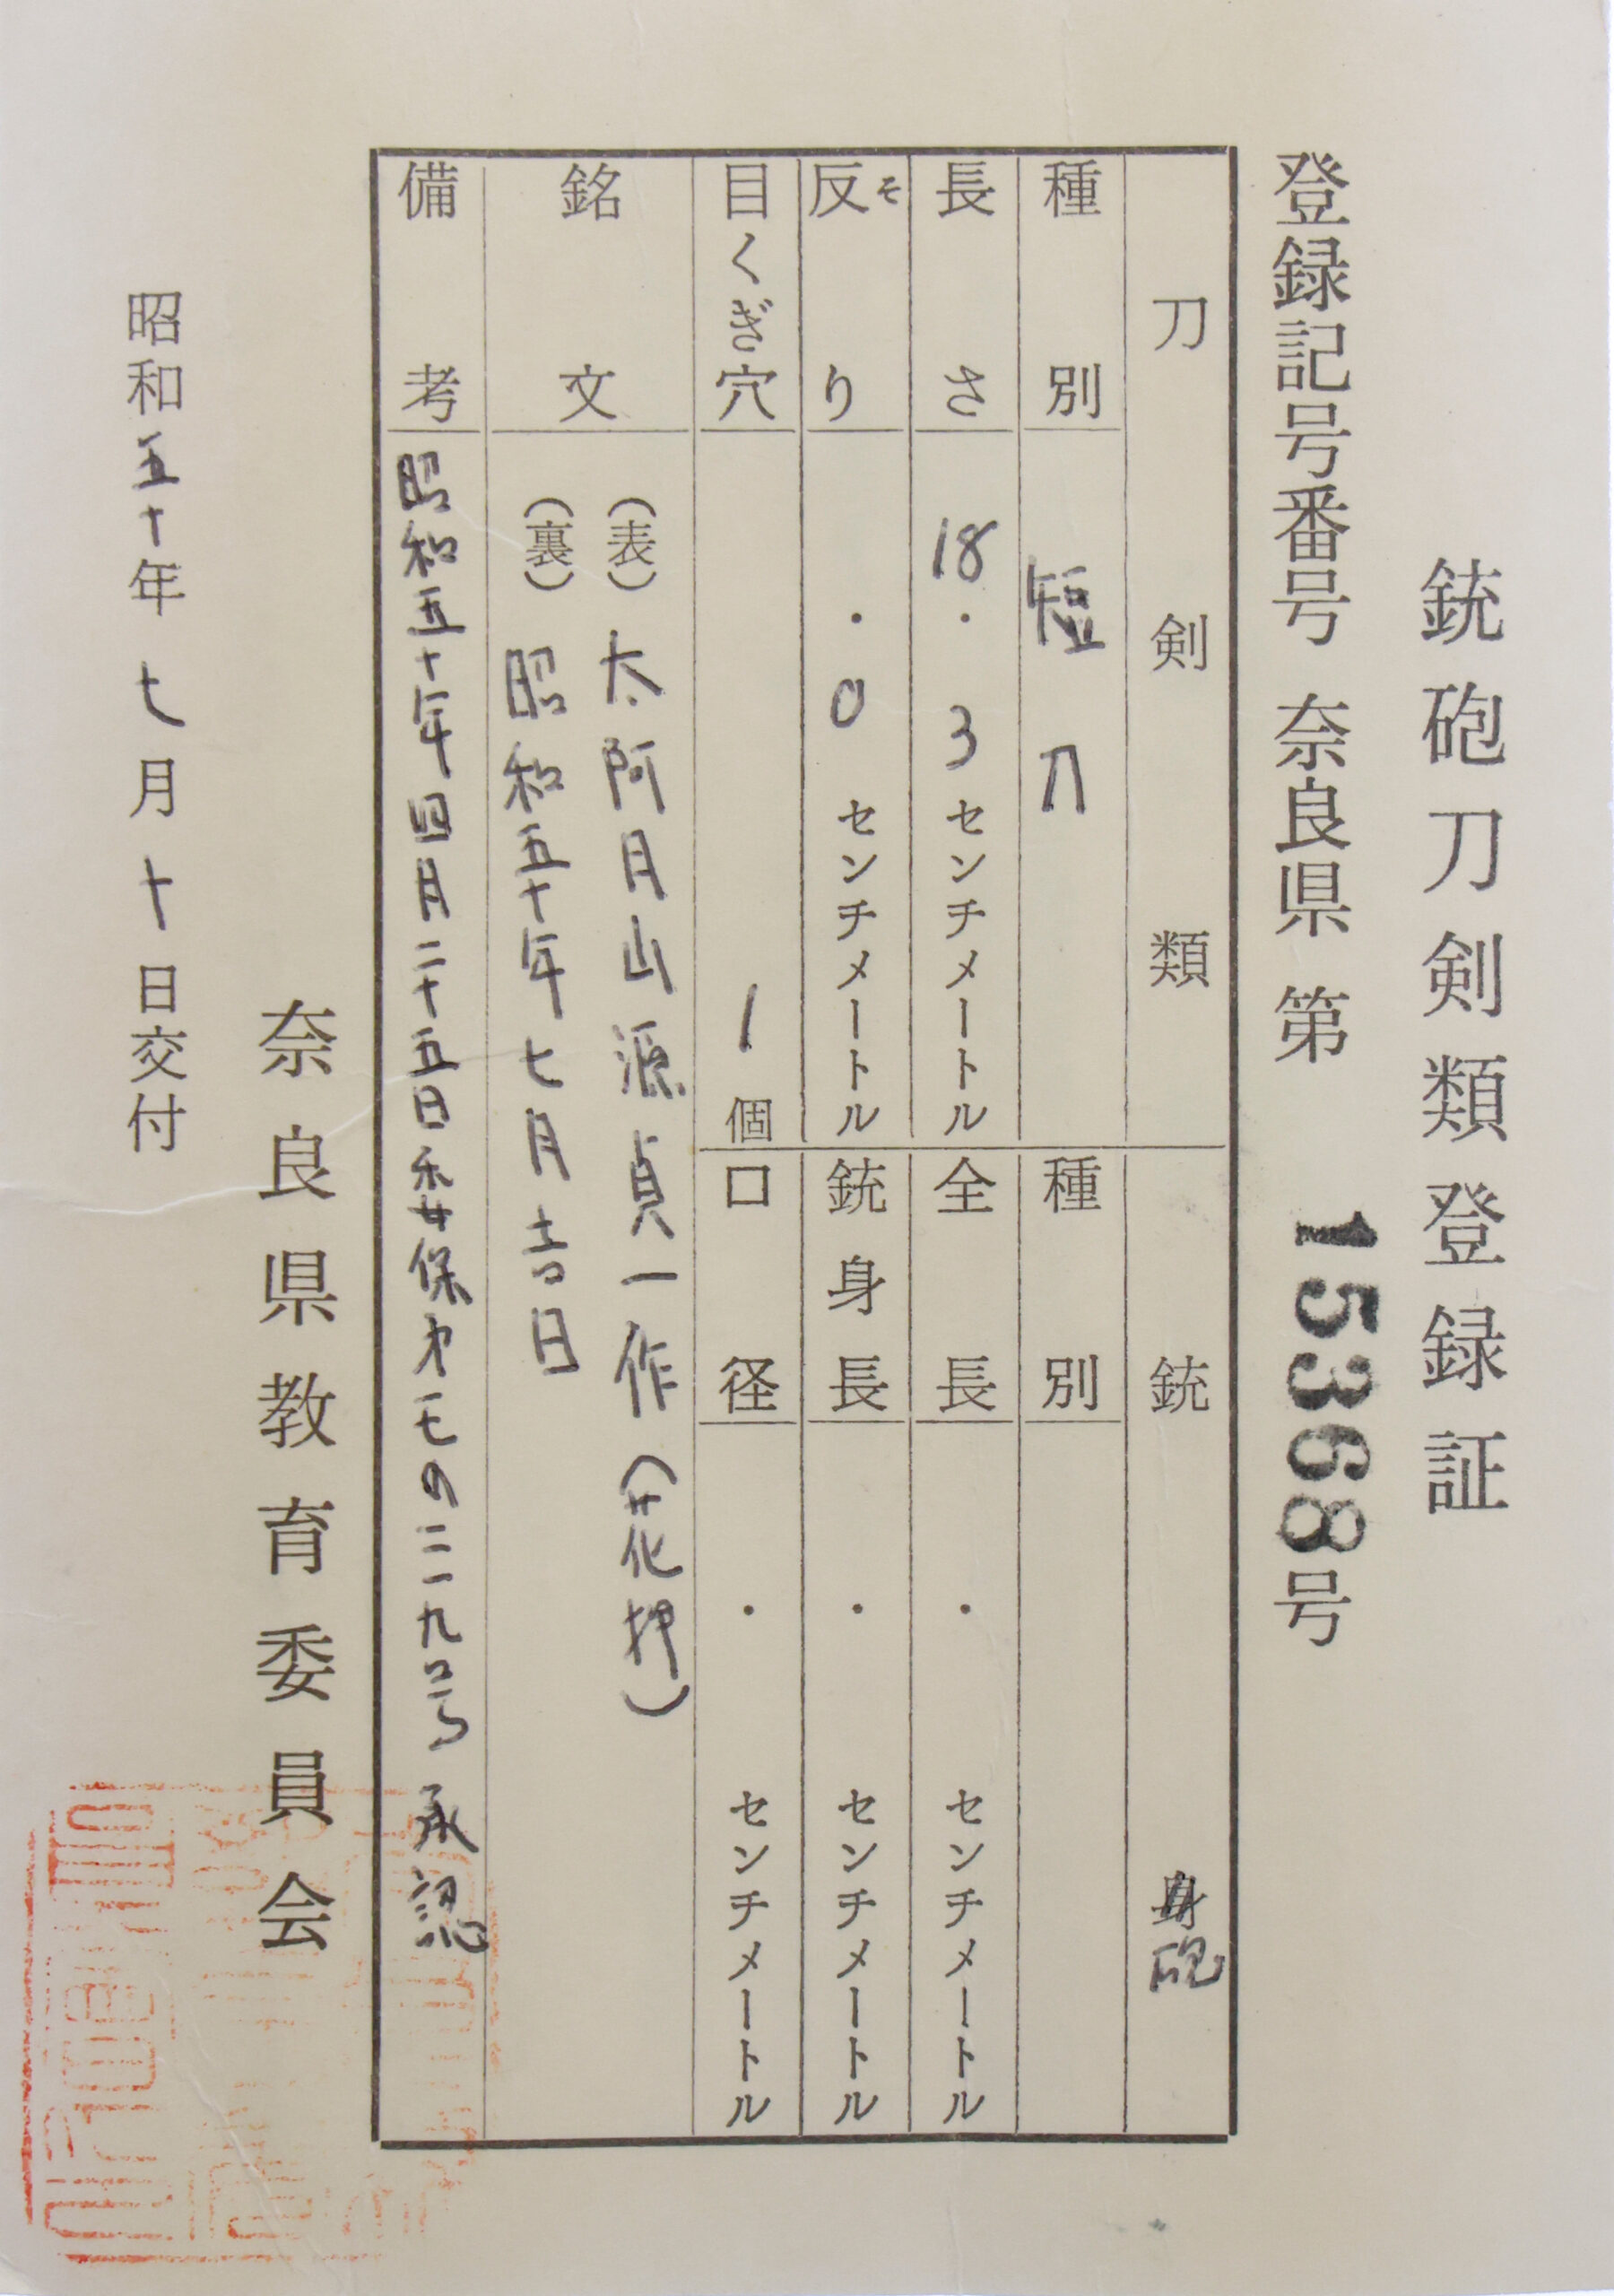 銃砲刀剣類登録証
登録記号番号 奈良県 第 15368号
刀剣類
種別 短刀
長さ 18.3センチメートル
反り そ .0センチメートル
目くぎ穴 1個
銃砲
種別
全長 .センチメートル
銃身長 .センチメートル
口径 .センチメートル
銘文 (表) 太阿月山源貞一作(花押)
(裏) 昭和五十年七月吉日
備考 昭和五十年四月二十五日委保才七の三一九号承認
奈良県教育委員会
昭和五十年七月十日交付